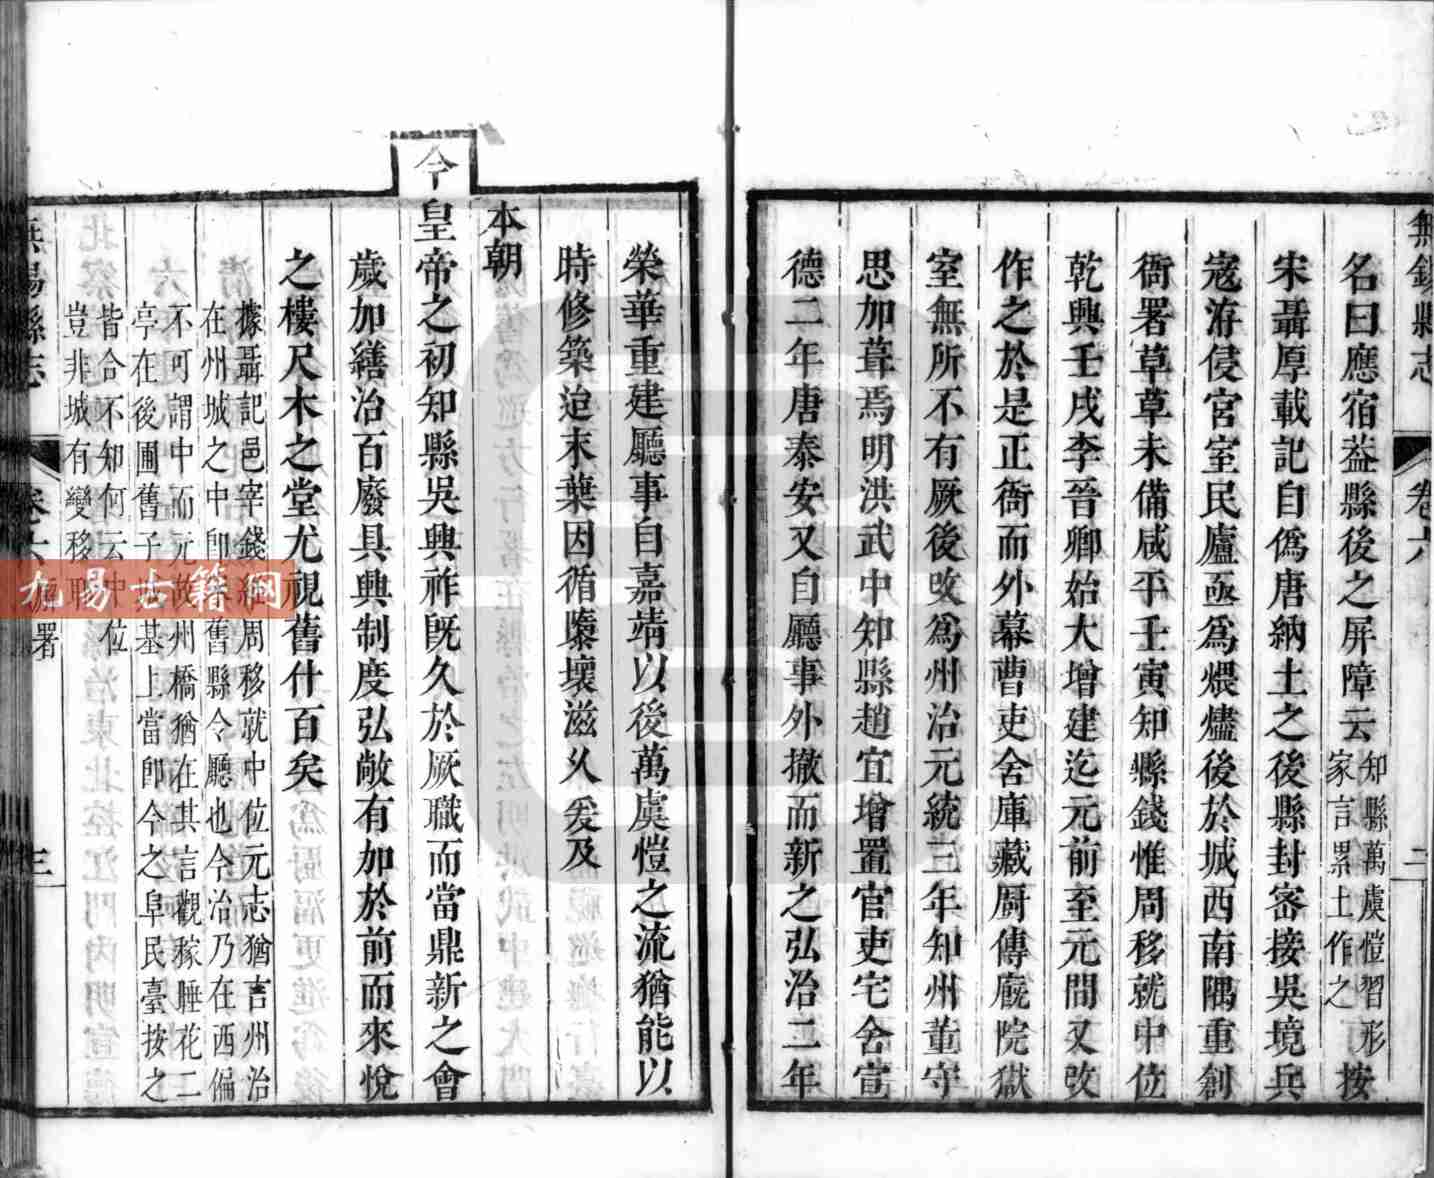 無錫縣志
卷六
二
名曰應宿葢縣後之屏障云知縣萬虞愷習形
家言累土作之按
宋聶厚載記自僞唐納土之後縣封密接吳境兵
寇洊侵宮室民廬亟爲煨燼後於城西南隅重創
衙署草草未備咸平壬寅知縣錢惟周移就中位
乾興壬戌李晉卿始大增建迄元前至元間又攺
作之於是正衙而外幕曹吏舍庫藏厨傳廐院獄
室無所不有厥後攺爲州治元統三年知州董守
思加葺焉明洪武中知縣趙宜增置官吏宅舍宣
德二年唐泰安又自廳事外撤而新之弘治二年
榮華重建廳事自嘉靖以後萬虞愷之流猶能以
時修築迨末葉因循隳壞滋乆爰及
本朝
今
皇帝之初知縣吳興祚旣久於厥職而當鼎新之會
歲加繕治百廢具興制度弘敞有加於前而來悅
之樓尺木之堂尤視舊什百矣
據聶記邑宰錢惟周移就中位元志猶言州治
在州城之中卽舊縣令廳也今治乃在西偏
不可謂中而元故州橋猶在其言觀稼睡花二
亭在後圃舊子城基上當卽今之阜民臺按之
皆合不知何云中位
豈非城有變移耶
無錫縣志
卷六
署
三
九易古籍網